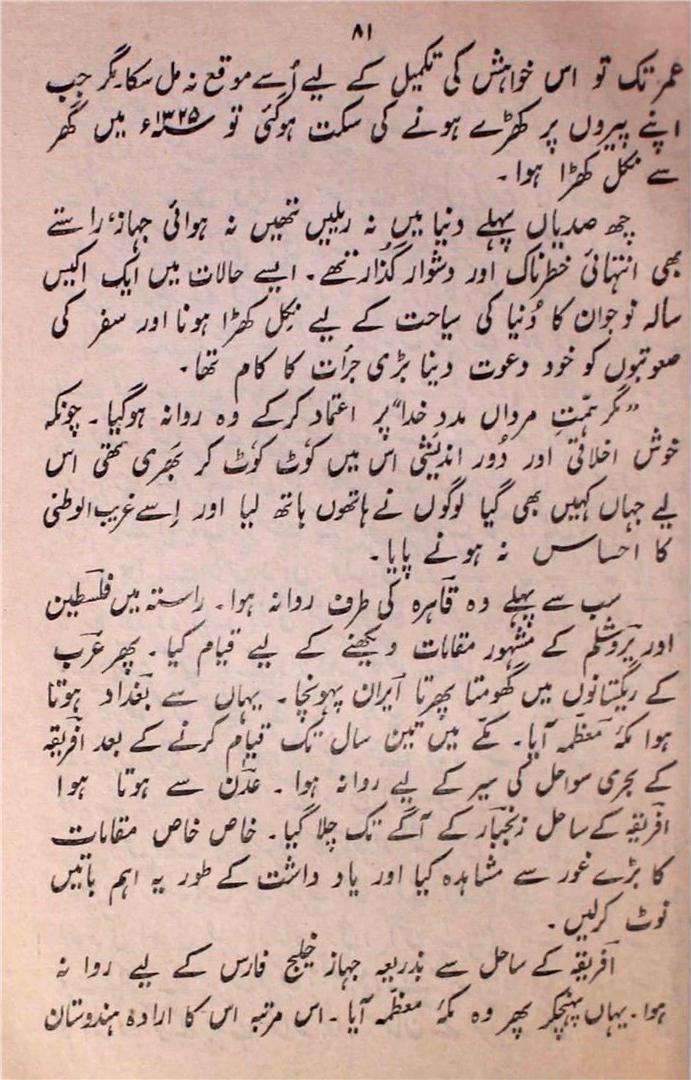 ۸۱
عمر تک تو اس خواہش کی تکمیل کے لیے اُسے موقع نہ مل سکا۔ مگر جب
اپنے پیروں پر کھڑے ہونے کی سکت ہوگئی تو ۱۳۲۵ء میں گھر
سے نکل کھڑا ہوا۔
چھ صدیاں پہلے دنیا میں نہ ریلیں تھیں نہ ہوائی جہاز، راستے
بھی انتہائی خطرناک اور دشوار گذار تھے۔ ایسے حالات میں ایک اکیس
سالہ نوجوان کا دُنیا کی سیاحت کے لیے نکل کھڑا ہونا اور سفر کی
صعوبتوں کو خود دعوت دینا بڑی جرأت کا کام تھا۔
”مگر ہمّتِ مرداں مدد خدا“ پر اعتماد کرکے وہ روانہ ہوگیا۔ چونکہ
خوش اخلاقی اور دُور اندیشی اس میں کوٗٹ کوٗٹ کر بھَری تھی اس
لیے جہاں کہیں بھی گیا لوگوں نے ہاتھوں ہاتھ لیا اور اِسے غریب الوطنی
کا احساس نہ ہونے پایا۔
سب سے پہلے وہ قاہرہ کی طرف روانہ ہوا۔ راستہ میں فلسطین
اور یروشلم کے مشہور مقامات دیکھنے کے لیے قیام کیا۔ پھر عرب
کے ریگستانوں میں گھومتا پھرتا ایران پہونچا۔ یہاں سے بغداد ہوتا
ہوا مکۂ معظّمہ آیا۔ مکّے میں تین سال تک قیام کرنے کے بعد افریقہ
کے بحری سواحل کی سیر کے لیے روانہ ہوا۔ عدن سے ہوتا ہوا
افریقہ کے ساحل زنجبار کے آگے تک چلا گیا۔ خاص خاص مقامات
کا بڑے غور سے مشاہدہ کیا اور یاد داشت کے طور پہ اہم باتیں
نوٹ کرلیں۔
افریقہ کے ساحل سے بذریعہ جہاز خلیج فارس کے لیے روا نہ
ہوا۔ یہاں پہنچکر پھر وہ مکۂ معظّمہ آیا۔ اس مرتبہ اس کا ارادہ ہندوستان